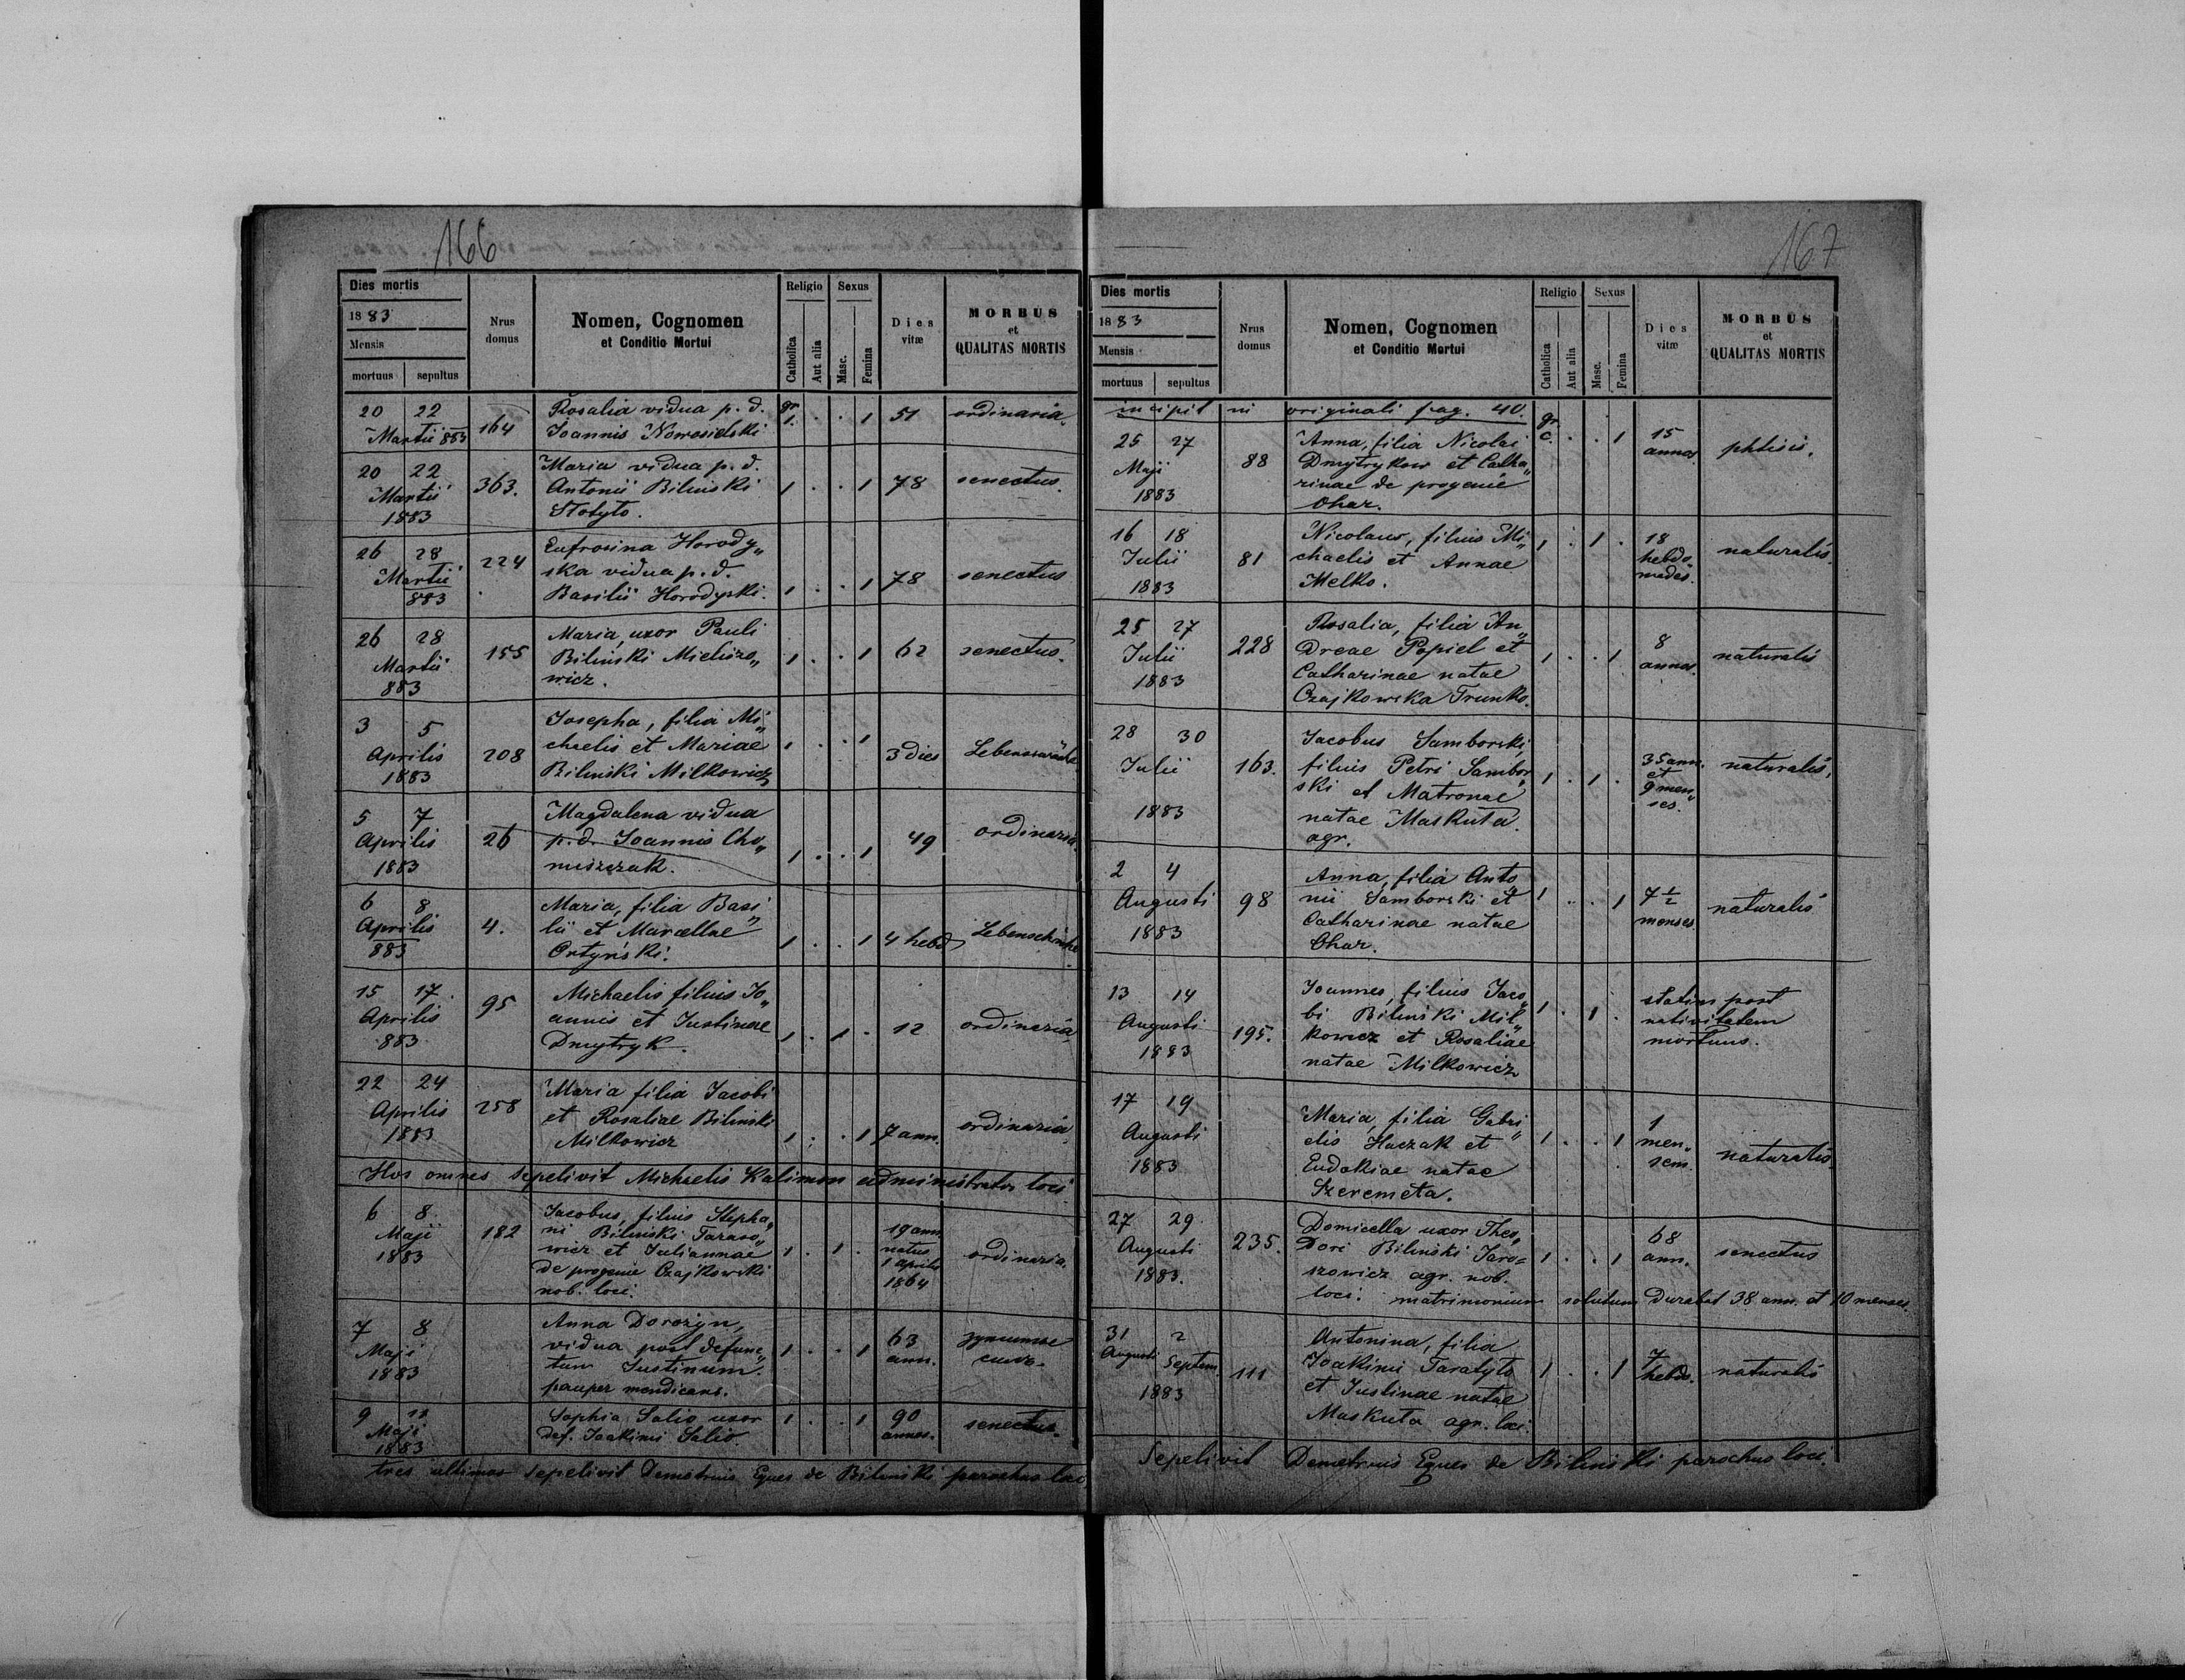 166
Dies mortis
1883
Mensis
mortuus sepultus
Nrus domus
Nomen, Cognomen
et Conditio Mortui
Religio
Catholica
Aut alia
Sexus
Masc.
Femina
Dies vitæ
MORBUS
et
QUALITAS MORTIS
20 22 Martii 883 164 Rosalia vidua p. d. gr 1. . . 1 51 ordinaria
Joannis Nowosielski
20 22 Martii 1883 363. Maria vidua p. d. 1 . . 1 78 senectus.
Antonii Bilinski
26 28 Martii 883 224 Eufrosina Horody„ 1 . . 1 78 senectus
ska vidua p. d.
Basilii Horodyski.
26 28 Martii 883 155 Maria, uxor Pauli 1 . . 1 62 senectus.
Bilinski
wicz.
3 5 Aprilis 1883 208 Josepha, filia Mi„ 1 . . 1 3 dies
chaelis et Mariae
Bilinski Milkowicz
5 7 Aprilis 1883 26 Magdalena vidua 1 . . 1 49 ordinaria.
p. d. Joannis Cho„
miszczak.
6 8 Aprilis 883 4. Maria, filia Basi„ 1 . . 1 4 hebd
lii et Marcellae
Ortyński.
15 17. Aprilis 883 95 Michaelis filius Jo„ 1 . 1 . 12 ordinaria
annis et Justinae
Dmytryk.
22 24 Aprilis 1883 258 Maria filia Jacobi 1 . . 1 7 ann. ordinaria
et Rosaliae Bilinski
Milkowicz
Hos omnes sepelivit Michaelis Kalimon administrator loci
6 8 Maji 1883 182 Jacobus, filius Stepha„ 1 . 1 . 19 ann. natus 1 aprilis 1864 ordinaria.
ni Bilinski Taraso„
wicz et Juliannae
de progenie Czajkowski
nob. loci.
7 8 Maji 1883 Anna Dorożyn, 1 . . 1 63 ann.
vidua post defunc„
tum Justinum.
pauper mendicans.
9 11 Maji 1883 Sophia Salio uxor 1 . . 1 90 annos. senectus.
def. Joakimi Salio.
tres ultimos sepelivit Demetrius Eques de Bilinski parochus loci
167
Dies mortis
1883
Mensis
mortuus sepultus
Nrus domus
Nomen, Cognomen
et Conditio Mortui
Religio
Catholica
Aut alia
Sexus
Masc.
Femina
Dies vitæ
MORBUS
et
QUALITAS MORTIS
incipit in originali pag. 40.
25 27 Maji 1883 88 Anna, filia Nicolai gr c. . . 1 15 annos. phtisis.
Dmytrykow et Catha„
rinae de progenie
Ohar.
16 18 Julii 1883 81 Nicolaus, filius Mi„ 1 . 1 . 18 hebdo„ mades. naturalis.
chaelis et Annae
Melko.
25 27 Julii 1883 228 Rosalia, filia An„ 1 . . 1 8 annos. naturalis
dreae Popiel et
Catharinae natae
Czajkowska Trunko.
28 30 Julii 1883 163. Jacobus Samborski, 1 . 1 . 35 ann. et 9 men„ ses. naturalis.
filius Petri Sambor„
ski et Matronae
natae Maskuta.
agr.
2 4 Augusti 1883 98 Anna, filia Anto„ 1 . . 1 7 1/2 menses. naturalis
nii Samborski et
Catharinae natae
Ohar.
13 14 Augusti 1883 195. Joannes, filius Jaco„ 1 . 1 . statim post nativitatem mortuus.
bi Bilinski Mil„
kowicz et Rosaliae
natae Milkowicz
17 19 Augusti 1883 Maria, filia Gabri„ 1 . . 1 1 men„ sem. naturalis.
elis Huczak et
Eudokiae natae
Szeremeta.
27 29 Augusti 1883. 235. Domicella uxor Theo„ 1 . . 1 68 ann. senectus
dori Bilinski Jaro=
szowicz agr. nob.
loci. matrimonium solutum durabat 38 ann. et 10 menses.
31 Augusti 2 Septem. 1883 111 Antonina, filia 1 . . 1 7 hebd. naturalis
Joakimi Taratyto
et Justinae natae
Maskuta agr. loci.
Sepelivit Demetrius Eques de Bilinski parochus loci.